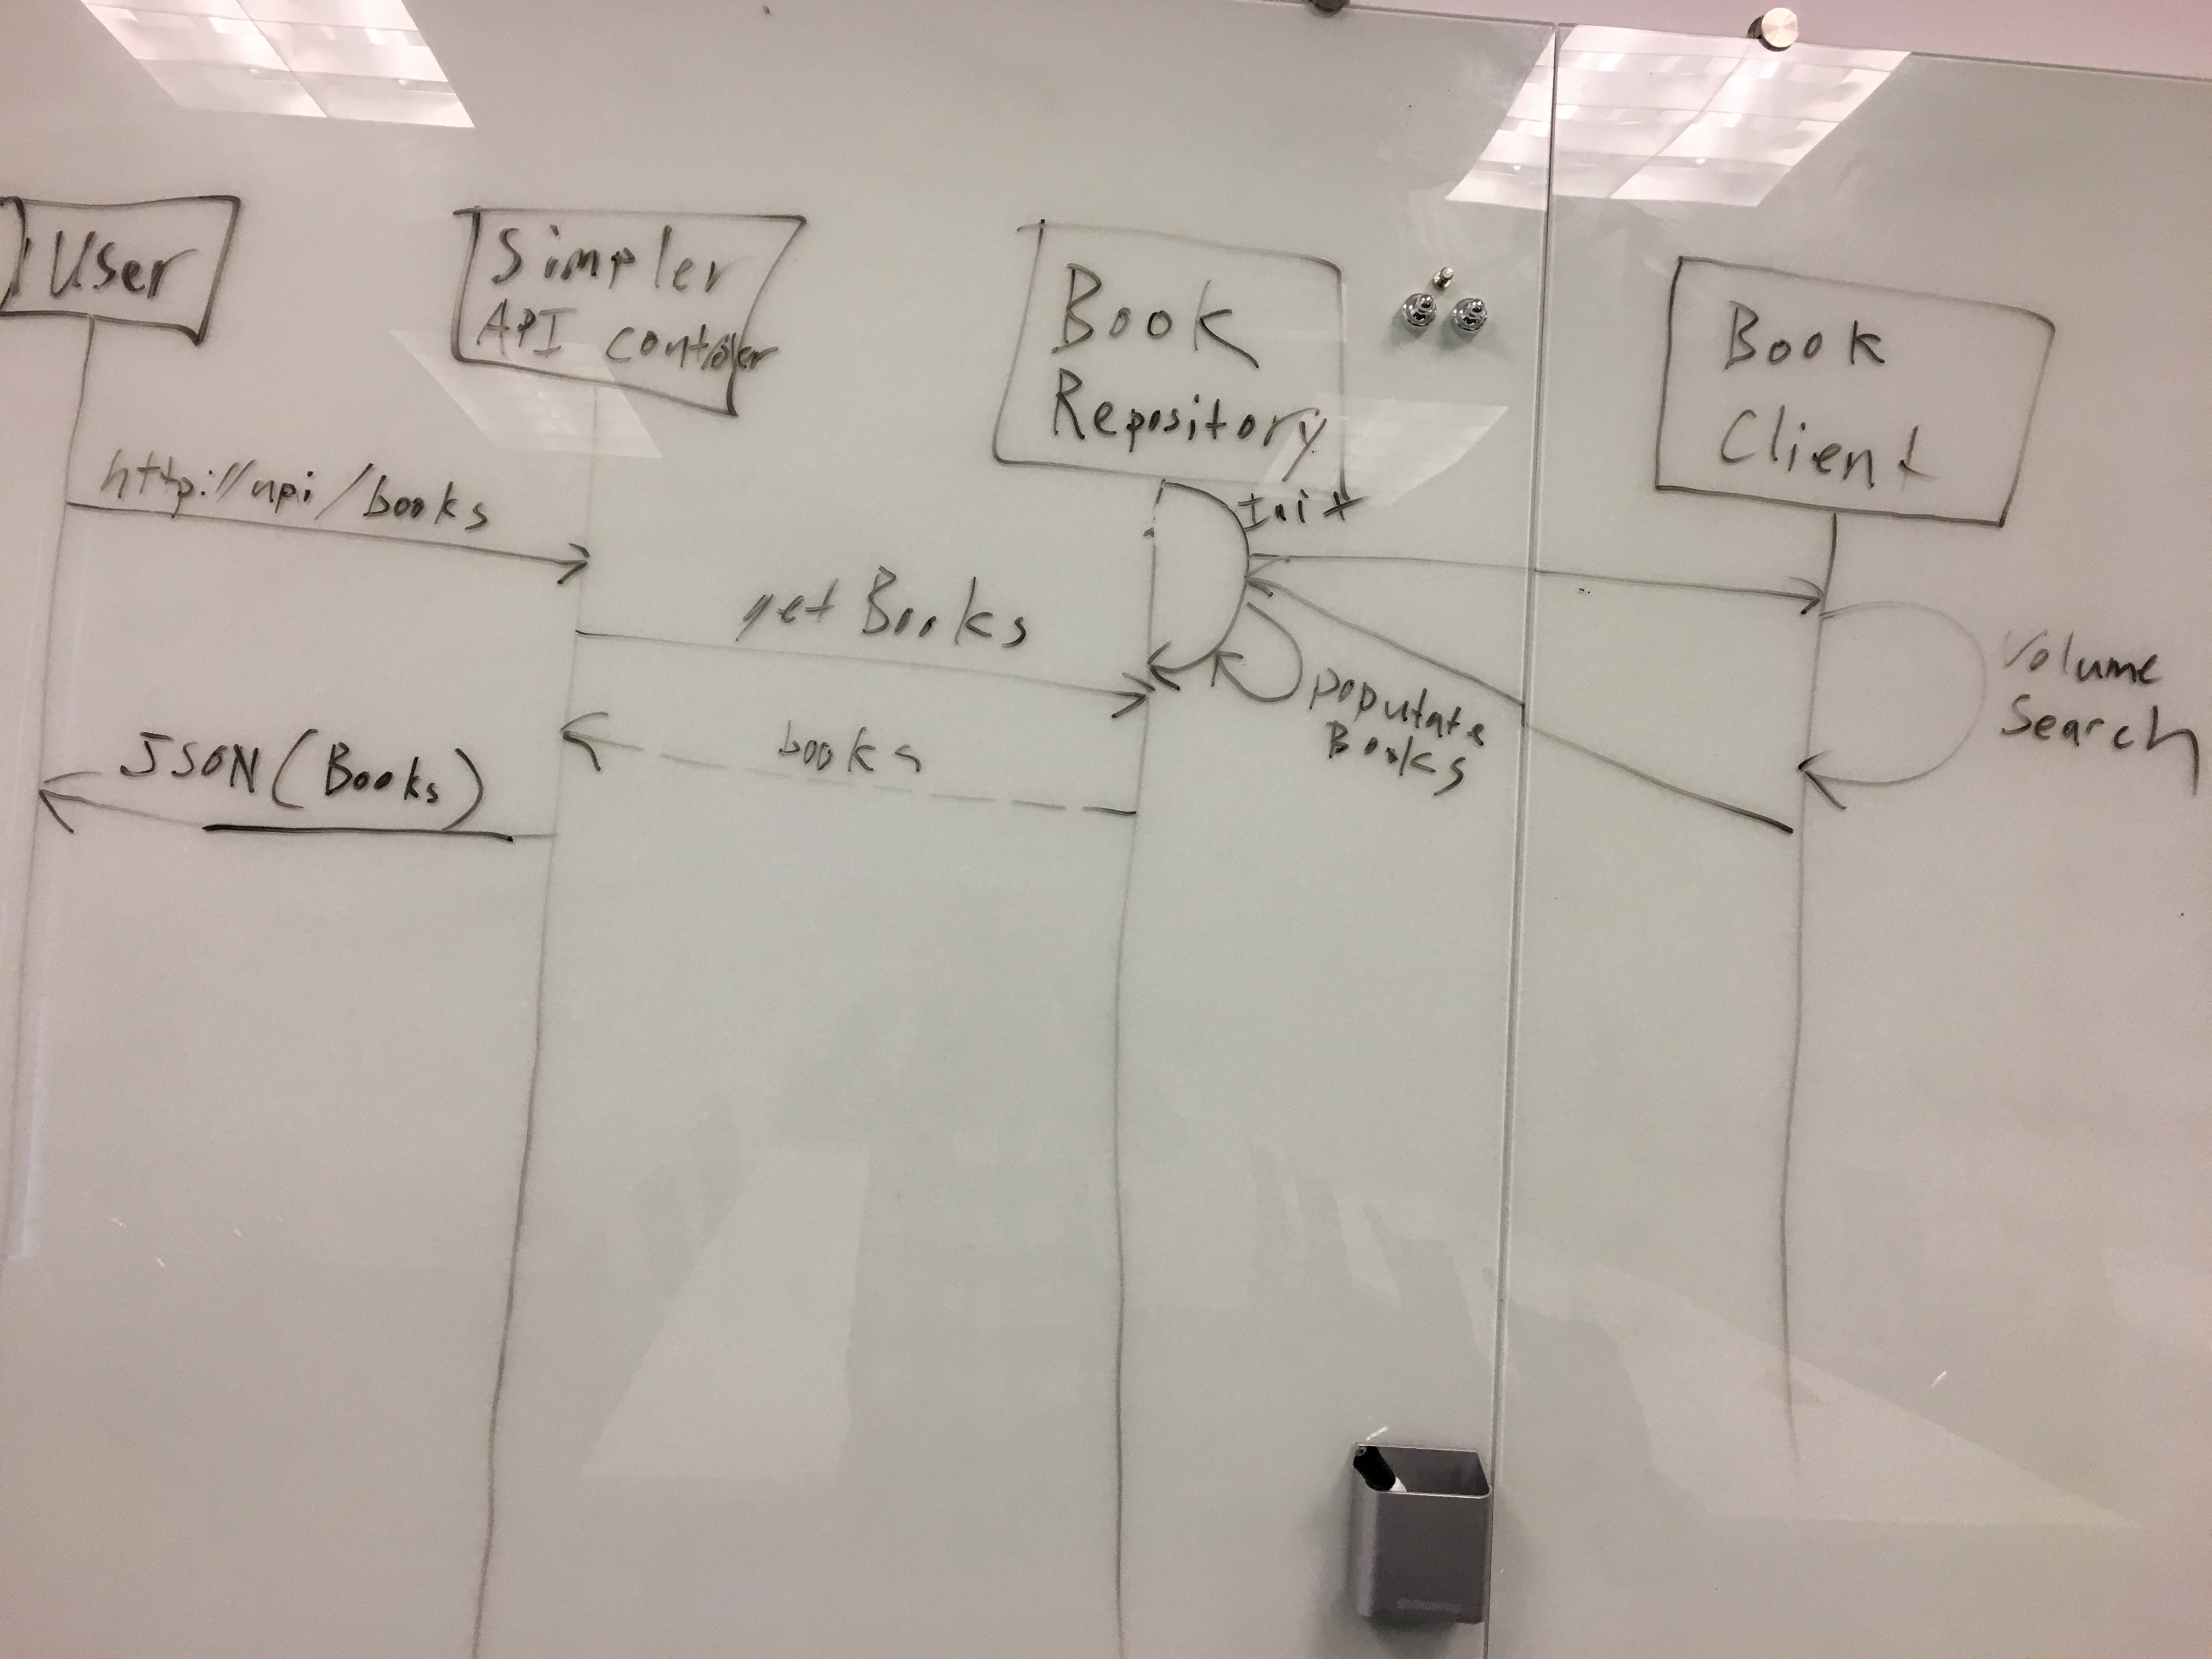 User
Simpler
API controller
Book
Repository
Book
Client
http://api/books
Init
get Books
Volume
Search
populate
Books
books
JSON (Books)